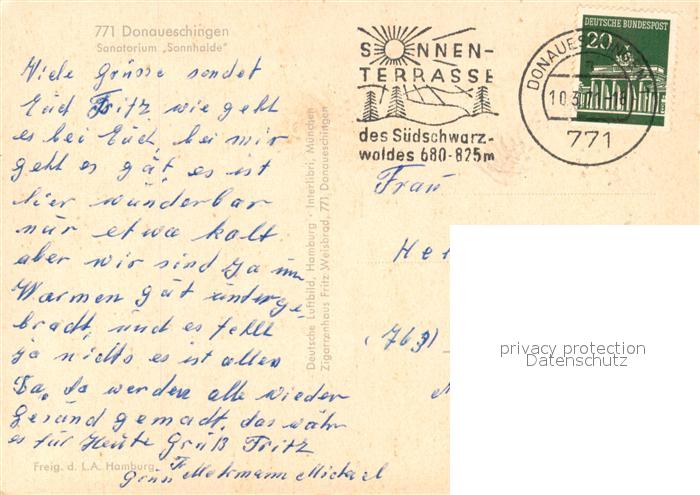 771 Donaueschingen
Sanatorium „Sonnhalde"
Viele Grüsse sendet
Euch Fritz, wie geht
es bei Euch, bei mir
geht es gut, es ist
hier wunderbar
nur etwa kalt
aber wir sind ja im
Warmen gut unterge-
bracht, und es fehlt
ja nichts es ist alles
Da, da werden alle wieder
Gesund gemacht, das währ
es für Heute Gruß Fritz
Gruss Michael
Freig. d. L.A. Hamburg
Deutsche Luftbild, Hamburg · Interlibri, München
Zigarrenhaus Fritz Weisbrod, 771 Donaueschingen
SONNEN-
TERRASSE
des Südschwarz-
waldes 680-825m
DONAUESCHINGEN
771
DEUTSCHE BUNDESPOST
20
Frau
He
(763)
privacy protection
Datenschutz